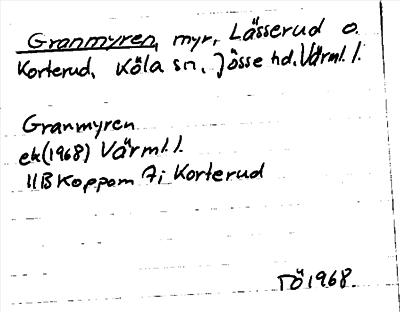 Granmyren, myr, Lässerud o.
Korterud, Köla sn, Jösse hd. Värml. l.
Granmyren
ek (1968) Värml. l.
11B Koppom 7i Korterud
TÖ 1968.